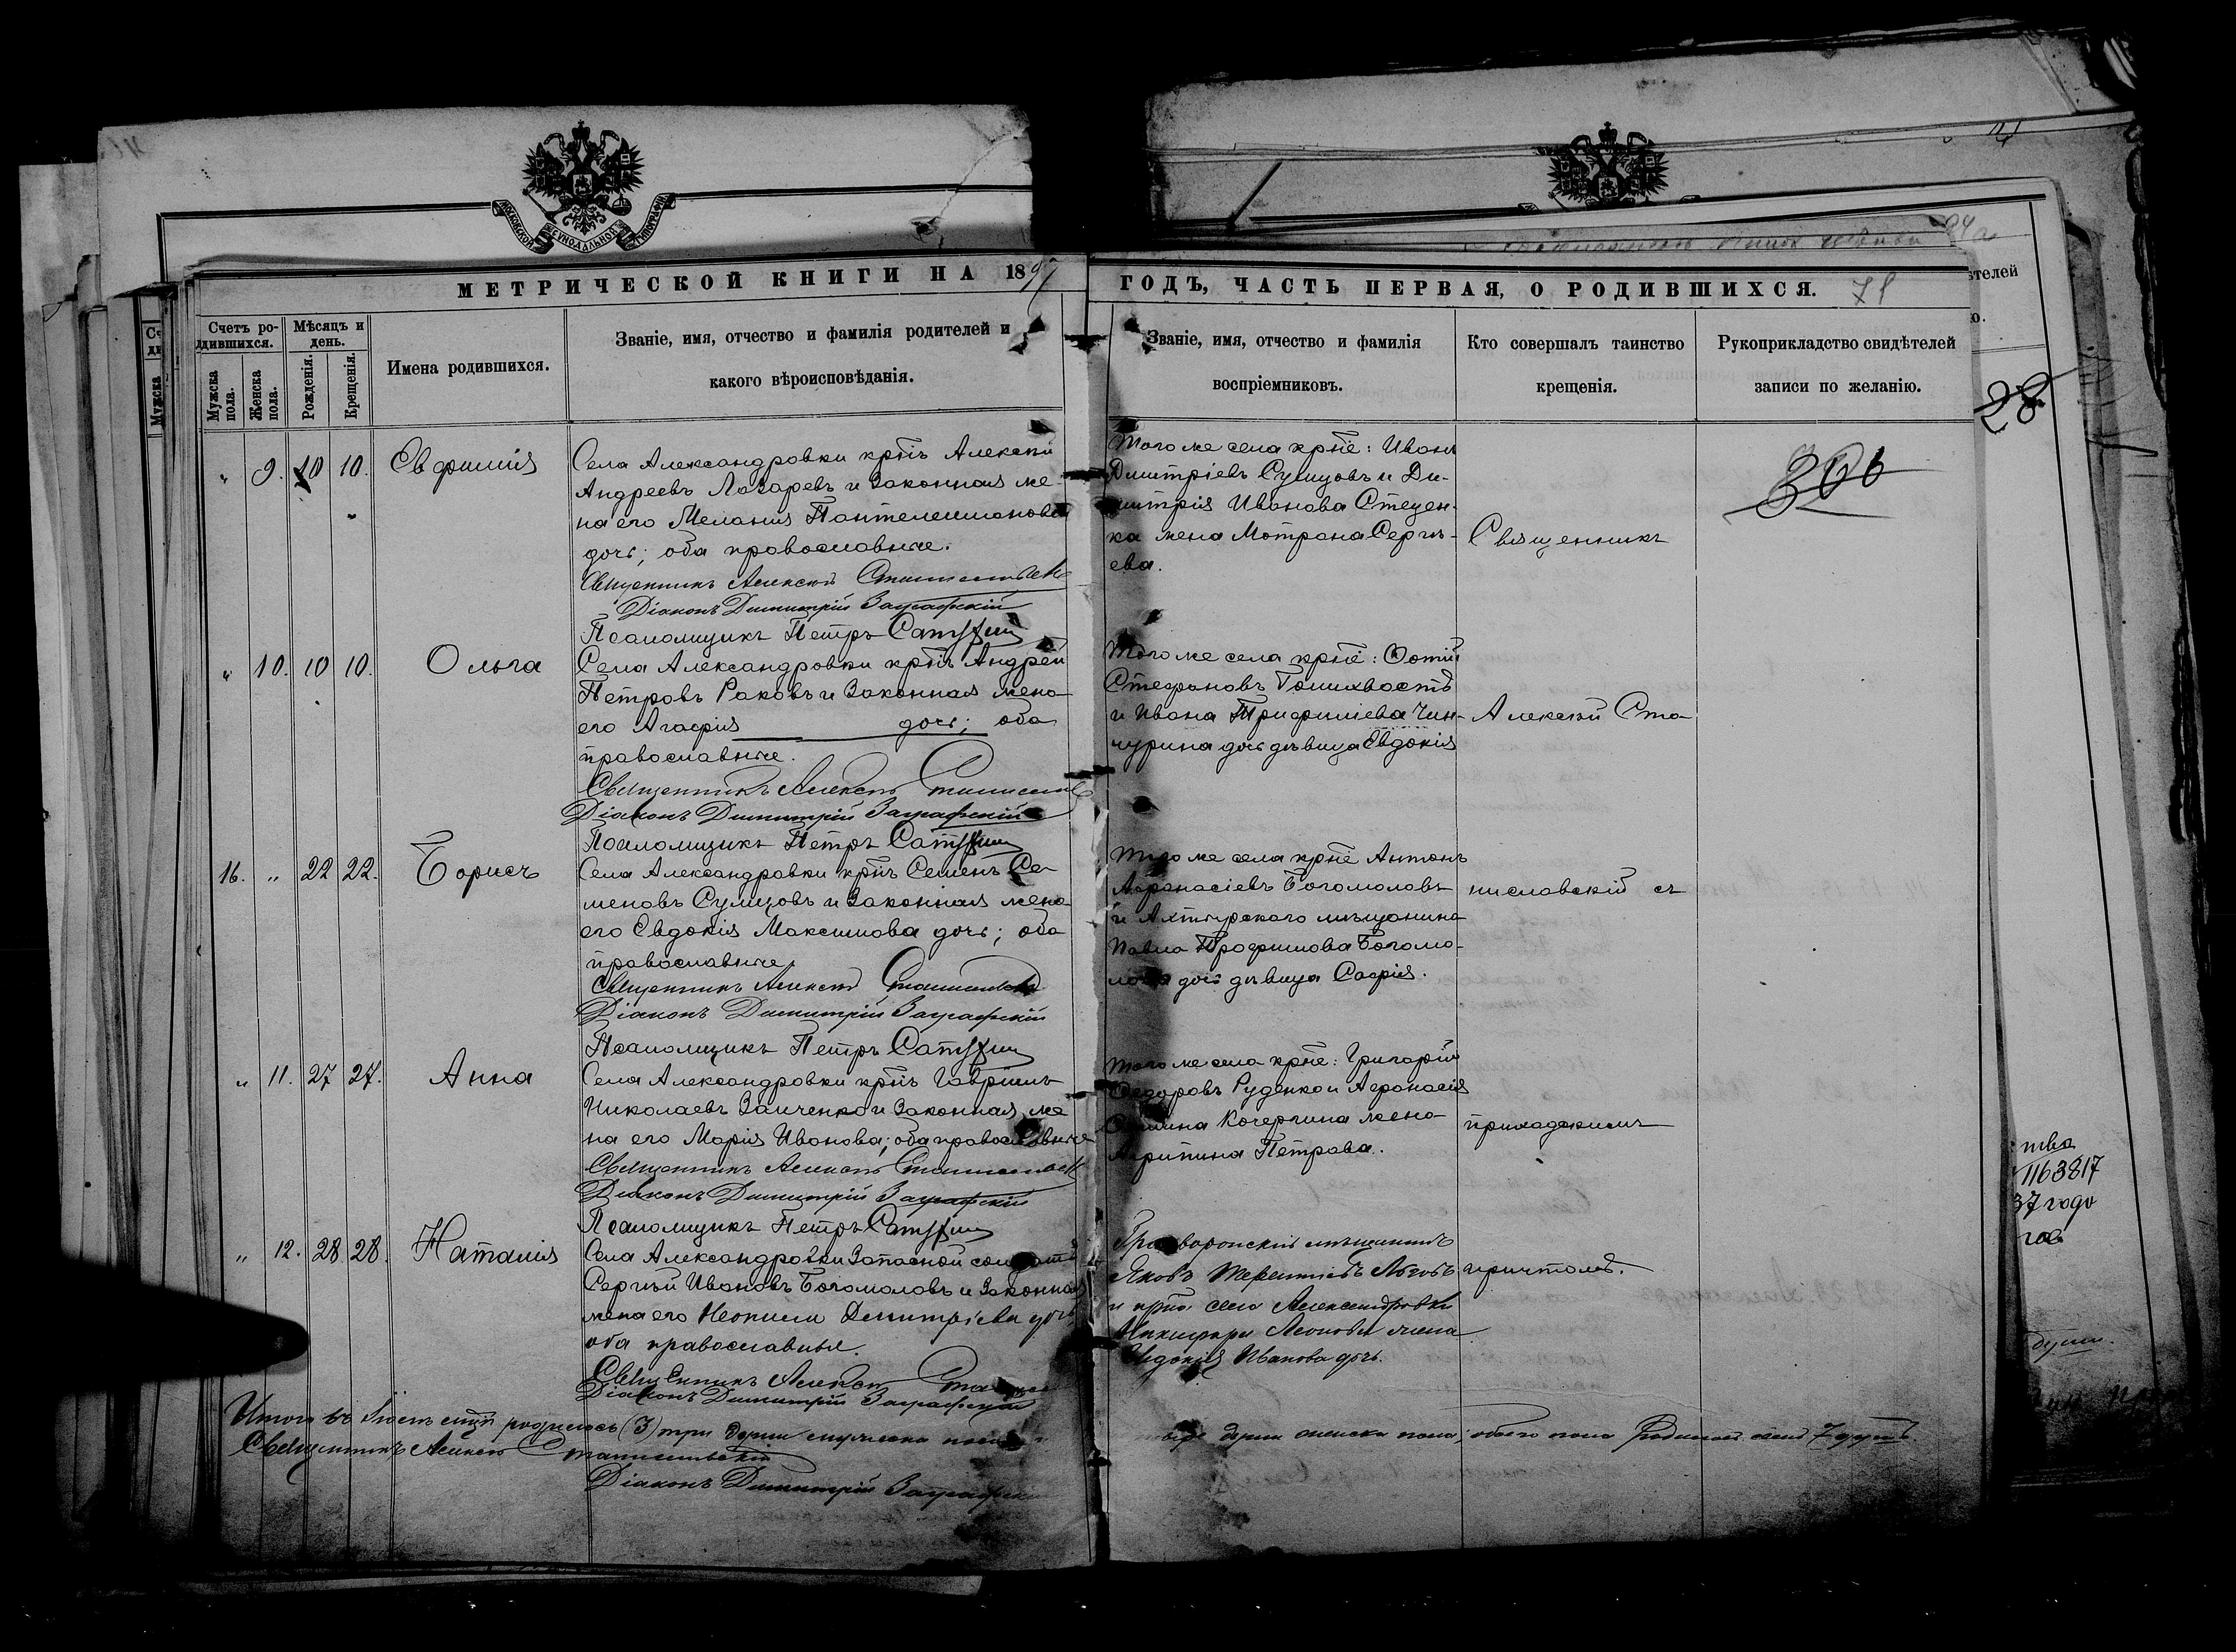 МОСКОВСКОЙ СѴНОДАЛЬНОЙ ТИПОГРАФІИ
МЕТРИЧЕСКОЙ КНИГИ НА 1897
ГОДЪ, ЧАСТЬ ПЕРВАЯ, О РОДИВШИХСЯ.
Счетъ ро-
дившихся.
Мѣсяцъ и
день.
Мужска
пола.
Женска
пола.
Рожденія.
Крещенія.
Имена родившихся.
Званіе, имя, отчество и фамилія родителей и
какого вѣроисповѣданія.
Званіе, имя, отчество и фамилія
воспріемниковъ.
Кто совершалъ таинство
крещенія.
Рукоприкладство свидѣтелей
записи по желанію.
28
" 9. 10 10. Евфимія
Села Александровки крн͞ъ Алексѣй
Андреевъ Лазаревъ и законная же-
на его Меланія Пантелеимонова
дочь; оба православные.
Священникъ Алексѣй
Діаконъ Димитрій
Псаломщикъ Петръ
Тогоже села крн͞е: Иванъ
Димитріевъ Сумцовъ и Ди-
митрія Иванова Стецен-
ка жена Мотрона Сергѣ-
ева.
Священникъ
366
" 10. 10 10. Ольга
Села Александровки крн͞ъ Андрей
Петровъ Раковъ и законная жена
его Агафія дочь; оба
православные.
Священникъ Алексѣй
Діаконъ Димитрій
Псаломщикъ Петръ
Тогоже села крн͞е: Фотій
Стефановъ Голихвостъ
и Ивана Трифиліева Чин-
чурина дочь дѣвица Евдокія
Алексѣй Ста-
16. " 22 22. Борисъ
Села Александровки крн͞ъ Семенъ Се-
меновъ Сумцовъ и законная жена
его Евдокія Максимова дочь; оба
православные.
Священникъ Алексѣй
Діаконъ Димитрій
Псаломщикъ Петръ
Тогоже села крн͞е Антонъ
Афанасіевъ Богомоловъ
и Ахтырскаго мѣщанина
Павла Трофимова Богомо-
лова дочь дѣвица Софія.
ниславскій съ
" 11. 27 27. Анна
Села Александровки крн͞ъ Гавріилъ
Николаевъ Заиченко и законная же
на его Марія Иванова; оба православные
Священникъ Алексѣй
Діаконъ Димитрій
Псаломщикъ Петръ
Тогоже села крн͞е: Григорій
Федоровъ Руденко и Афанасія
Кочергина жена
Агрипина Петрова.
приходскимъ
" 12. 28 28. Наталія
Села Александровки запасной солдатъ
Сергѣй Ивановъ Богомоловъ и законная
жена его Неонила Димитріева дочь
оба православные.
Священникъ Алексѣй
Діаконъ Димитрій
мѣщанинъ
Яковъ Терентіевъ
и села Александровки
Никифора Леонова жена
Евдокія Иванова дочь.
причтомъ.
Итого въ родилось (3) три души мужеска
души женска пола; обоего пола 7 душъ.
Священникъ Алексѣй Станиславскій
Діаконъ Димитрій
1163817
37 года